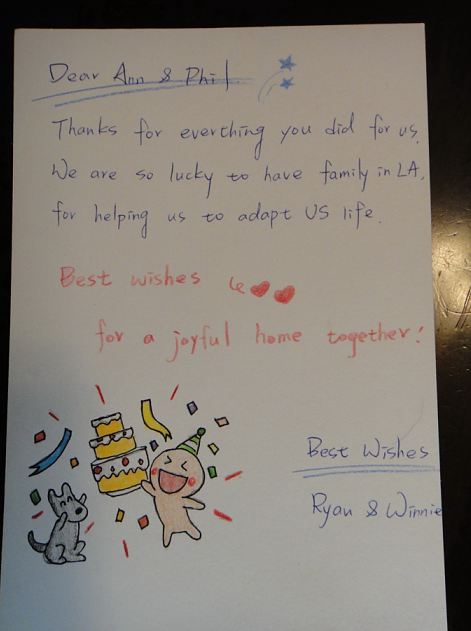 Dear Ann & Phil.
Thanks for everthing you did for us.
We are so lucky to have family in LA,
for helping us to adapt US life.
Best wishes
for a joyful home together!
Best Wishes
Ryan & Winnie